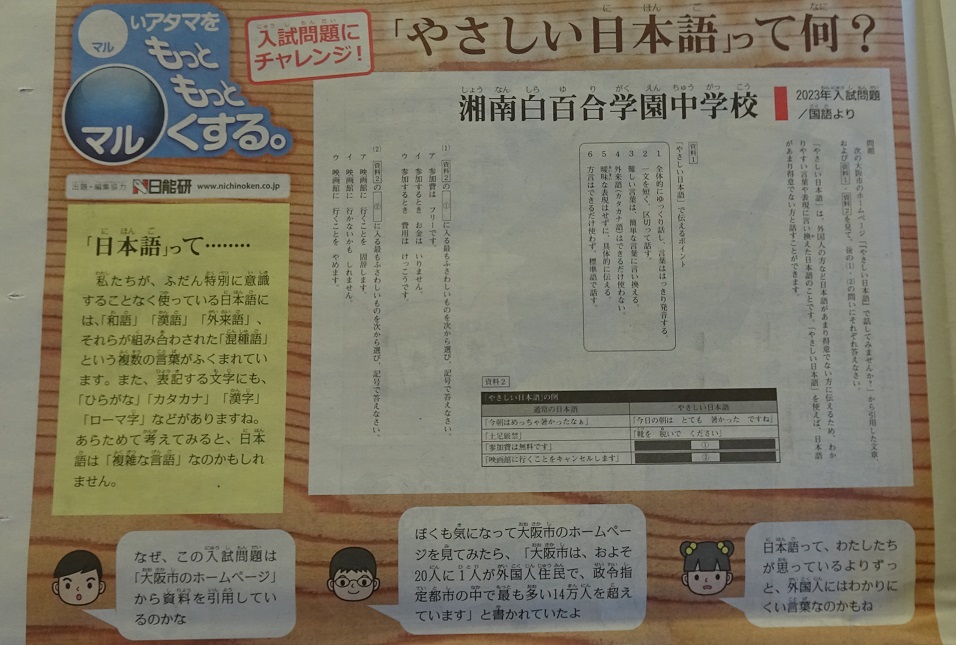 ○いアタマを
マル
もっと
もっと
マル くする。
入試問題に
チャレンジ！
「やさしい日本語」って何？
出題・編集協力 日能研 www.nichinoken.co.jp
「日本語」って………
私たちが、ふだん特別に意識
することなく使っている日本語に
は、「和語」「漢語」「外来語」、
それらが組み合わされた「混種語」
という複数の言葉がふくまれてい
ます。また、表記する文字にも、
「ひらがな」「カタカナ」「漢字」
「ローマ字」などがありますね。
あらためて考えてみると、日本
語は「複雑な言語」なのかもしれ
ません。
湘南白百合学園中学校
2023年入試問題
／国語より
問題
次の大阪市のホームページ「「やさしい日本語」で話してみませんか？」から引用した文章、
および資料1・資料2を見て、後の(1)・(2)の問いにそれぞれ答えなさい。
「やさしい日本語」は、外国人の方など日本語があまり得意でない方に伝えるため、わか
りやすい言葉や表現に言い換えた日本語のことです。「やさしい日本語」を使えば、日本語
があまり得意でない方と話すことができます。
資料1
「やさしい日本語」で伝えるポイント
1 全体的にゆっくり話し、言葉ははっきり発音する。
2 一文を短く、区切って話す。
3 難しい言葉は、簡単な言葉に言い換える。
4 外来語(カタカナ語)はできるだけ使わない。
5 曖昧な表現はせずに、具体的に伝える。
6 方言はできるだけ使わず、標準語で話す。
資料2
「やさしい日本語」の例
通常の日本語 やさしい日本語
「今朝はめっちゃ暑かったなぁ」 「今日の朝は とても 暑かった ですね」
「土足厳禁」 「靴を 脱いで ください」
「参加費は無料です」 ①
「映画館に行くことをキャンセルします」 ②
(1) 資料2の ① に入る最もふさわしいものを次から選び、記号で答えなさい。
ア 参加費は フリーです。
イ 参加するとき お金は いりません。
ウ 参加するとき 費用は けっこうです。
(2) 資料2の ② に入る最もふさわしいものを次から選び、記号で答えなさい。
ア 映画館に 行くことを 固辞します。
イ 映画館に 行かないかも しれません。
ウ 映画館に 行くことを やめます。
なぜ、この入試問題は
「大阪市のホームページ」
から資料を引用してい
るのかな
ぼくも気になって大阪市のホームペー
ジを見てみたら、「大阪市は、およそ
20人に1人が外国人住民で、政令指
定都市の中で最も多い14万人を超え
ています」と書かれていたよ
日本語って、わたしたち
が思っているよりずっ
と、外国人にはわかりに
くい言葉なのかもね